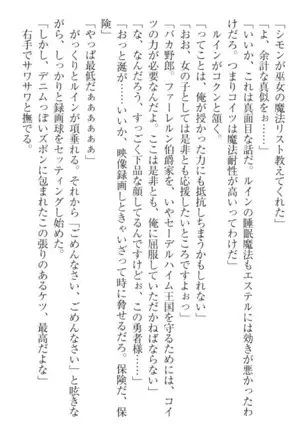 「シモンが巫女の魔法リスト教えてくれた」
「よ、余計な真似をぉ……」
「いいか、これは真面目な話だ。ルインの睡眠魔法もエステルには効きが悪かったわ
けだろ。つまりコイツは魔法耐性が高いってわけだ」
ルインがコクンと頷く。
「ってことは、俺が授かった力にも抵抗しちまうかもしれない」
「おお、女の子としては是非とも応援したいところですよぉっ」
「バカ野郎。ファーレルン伯爵家を、いやセーデルハイム王国を守るためには、コイ
ツの力が必要なんだよ。ここは是非とも、俺に屈服していただかねばならない」
「な、なんだろう、すっごく下品な顔してるんですけどぉ、この勇者様……」
「おっと涎が……いいか、映像録画しときゃいざって時に脅せるだろ。保険だ、保
険」
「やっぱ最低だぁぁぁぁぁぁ」
がっくりとルインが項垂れる。それから「ごめんなさい、ごめんなさい」と呟きな
がら、しっかりと録画球をセッティングし始めた。
「しかし、デニムっぽいズボンに包まれたこの張りのあるケツ、最高だよな」
右手でサワサワと撫でる。